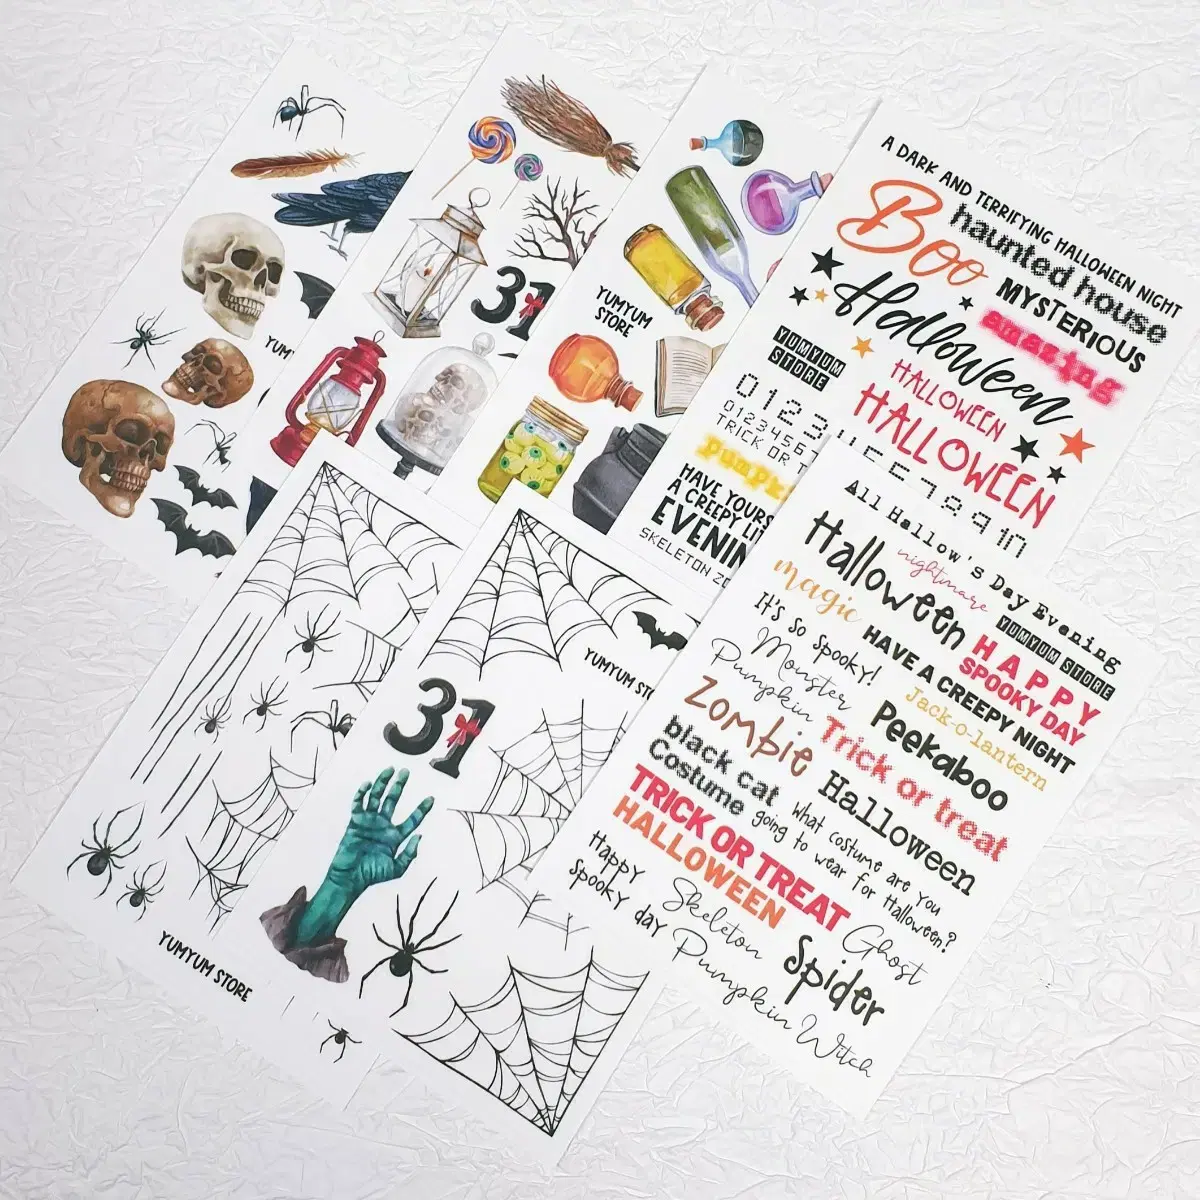 31
YUMYUM
STORE
A DARK AND TERRIFYING HALLOWEEN NIGHT
Boo
haunted house
MYSTERIOUS
Halloween
amazing
YUMYUM
STORE
HALLOWEEN
HALLOWEEN
0123
TRICK OR T
HAVE YOURS
A CREEPY LI
EVENIN
SKELETON
YUMYUM STORE
31
All Hallow's Day Evening
nightmare
Halloween
YUMYUM STORE
magic
HAPPY
SPOOKY DAY
It's so spooky!
HAVE A CREEPY NIGHT
Monster
Pumpkin
Jack-o-lantern
Zombie
Peekaboo
Trick or treat
black cat
Costume
Halloween
what costume are you
going to wear for Halloween?
TRICK OR TREAT
HALLOWEEN
Happy
Spooky day
Skeleton
Ghost
Pumpkin
Spider
Witch